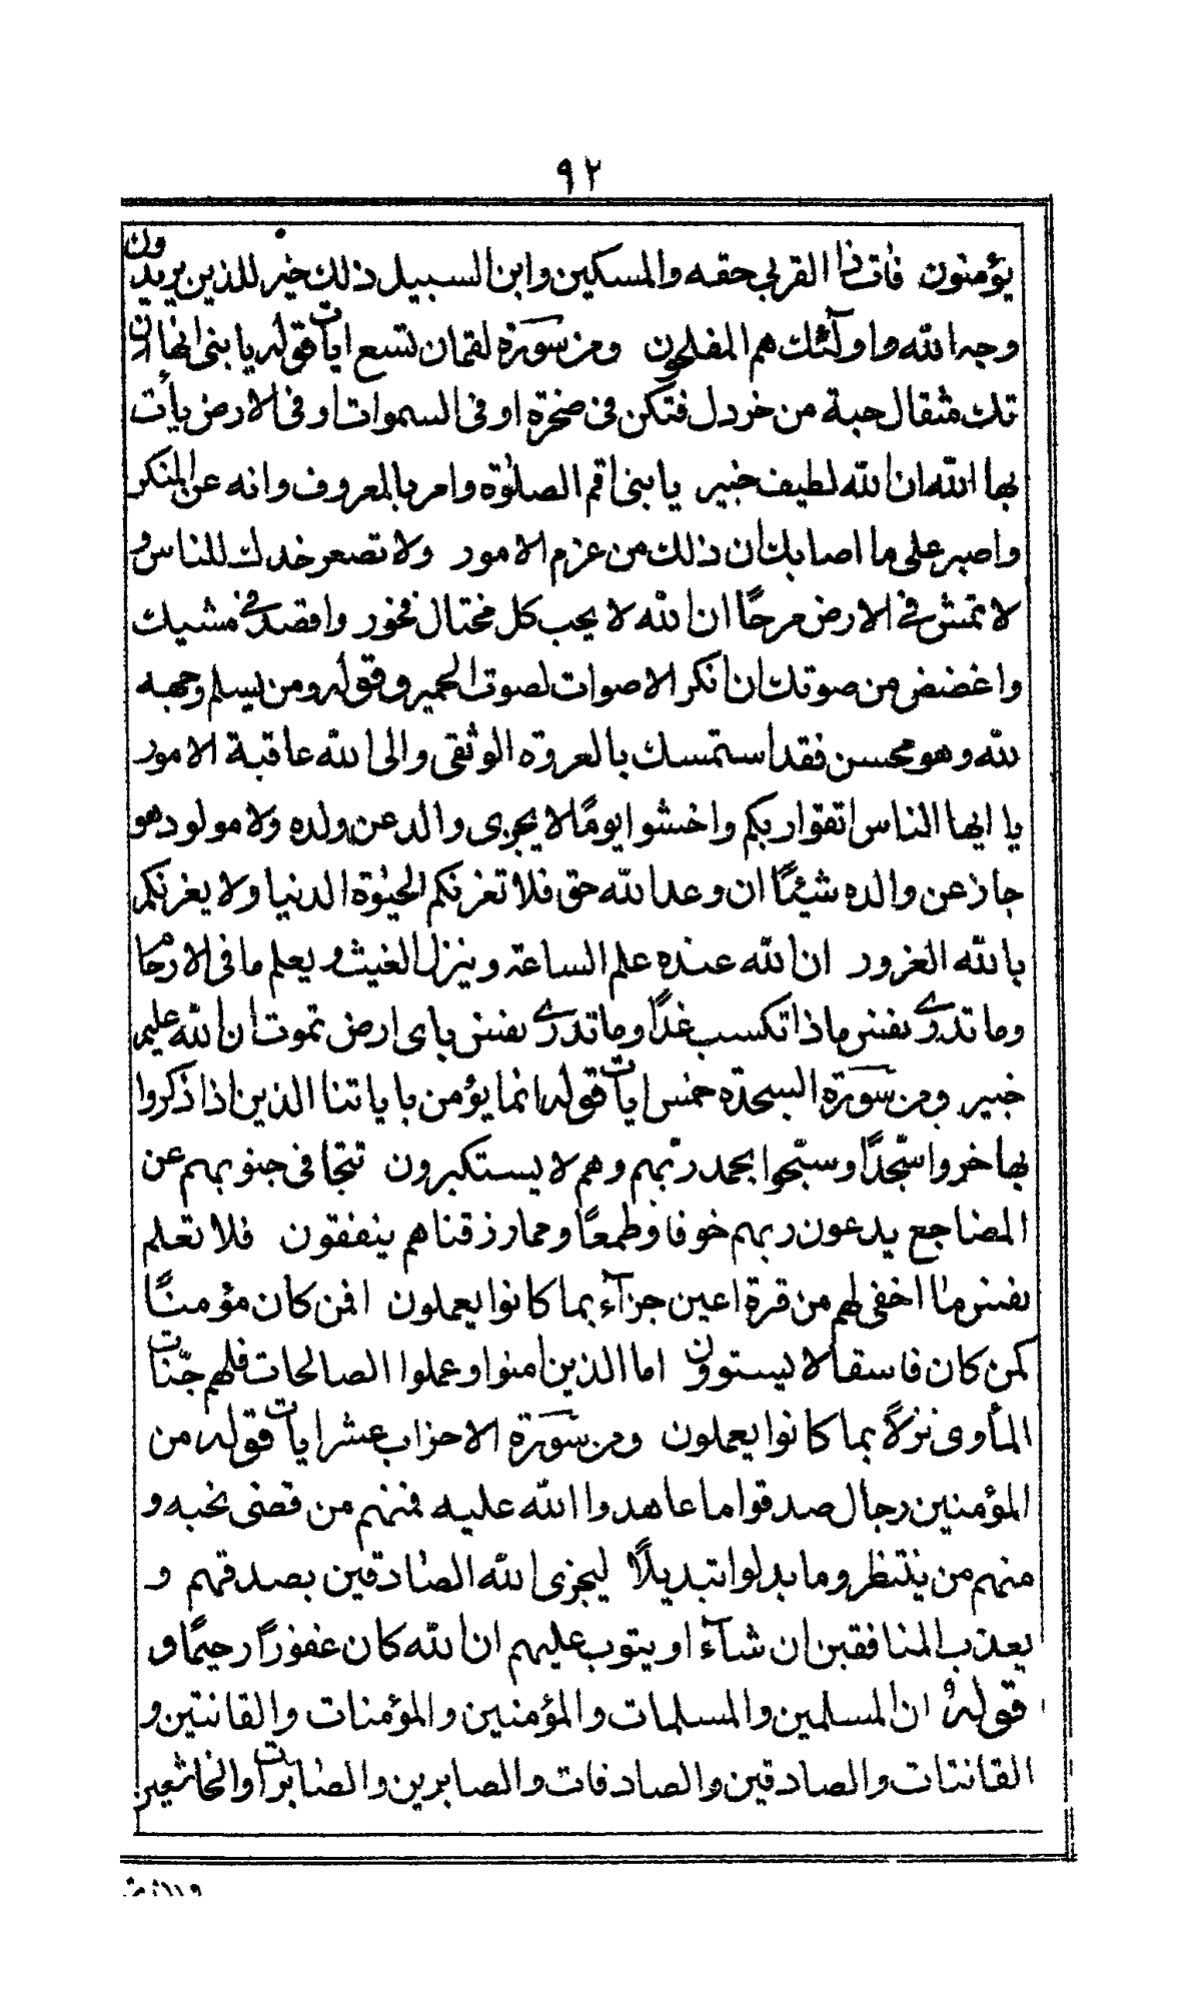 ٩٢
يؤمنون فات ذا القربى حقه والمسكين وابن السبيل ذلك خير للذين يريدون
وجه الله واولٓئك هم المفلحون ومن سورة لقمان تسع ايات قوله يا بنى انها ان
تك مثقال حبة من خردل فتكن فى صخرة او فى السموات او فى الارض يأت
بها الله ان الله لطيف خبير يا بنى اقم الصلوٰة وامر بالمعروف وانه عن المنكر
واصبر على ما اصابك ان ذلك من عزم الامور ولا تصعر خدك للناس و
لا تمش فى الارض مرحًا ان الله لا يحب كل مختال فخور واقصد فى مشيك
واغضض من صوتك ان انكر الاصوات لصوت الحمير وقوله ومن يسلم وجهه
لله وهو محسن فقد استمسك بالعروة الوثقى والى الله عاقبة الامور
يا ايها الناس اتقوا ربكم واخشوا يومًا لا يجزى والد عن ولده ولا مولود هو
جاز عن والده شيئًا ان وعد الله حق فلا تغرنكم الحيٰوة الدنيا ولا يغرنكم
بالله الغرور ان الله عنده علم الساعة وينزل الغيث ويعلم ما فى الارحام
وما تدرى نفس ماذا تكسب غدًا وما تدرى نفس باى ارض تموت ان الله عليم
خبير ومن سورة السجدة خمس ايات قوله انما يؤمن باياتنا الذين اذا ذكروا
بها خروا سجّدًا وسبّحوا بحمد ربّهم وهم لا يستكبرون تتجافى جنوبهم عن
المضاجع يدعون ربهم خوفا وطمعًا ومما رزقناهم ينفقون فلا تعلم
نفس ما اخفى لهم من قرة اعين جزآء بما كانوا يعملون افمن كان مؤمنًا
كمن كان فاسقا لا يستوون اما الذين امنوا وعملوا الصالحات فلهم جنّات
المأوى نزلاً بما كانوا يعملون ومن سورة الاحزاب عشر ايات قوله من
المؤمنين رجال صدقوا ما عاهدوا الله عليه فمنهم من قضى نحبه و
منهم من ينتظر وما بدلوا تبديلاً ليجزى الله الصادقين بصدقهم و
يعذب المنافقين ان شآء او يتوب عليهم ان الله كان غفورًا رحيمًا و
قوله ان المسلمين والمسلمات والمؤمنين والمؤمنات والقانتين و
القانتات والصادقين والصادقات والصابرين والصابرات والخاشعين